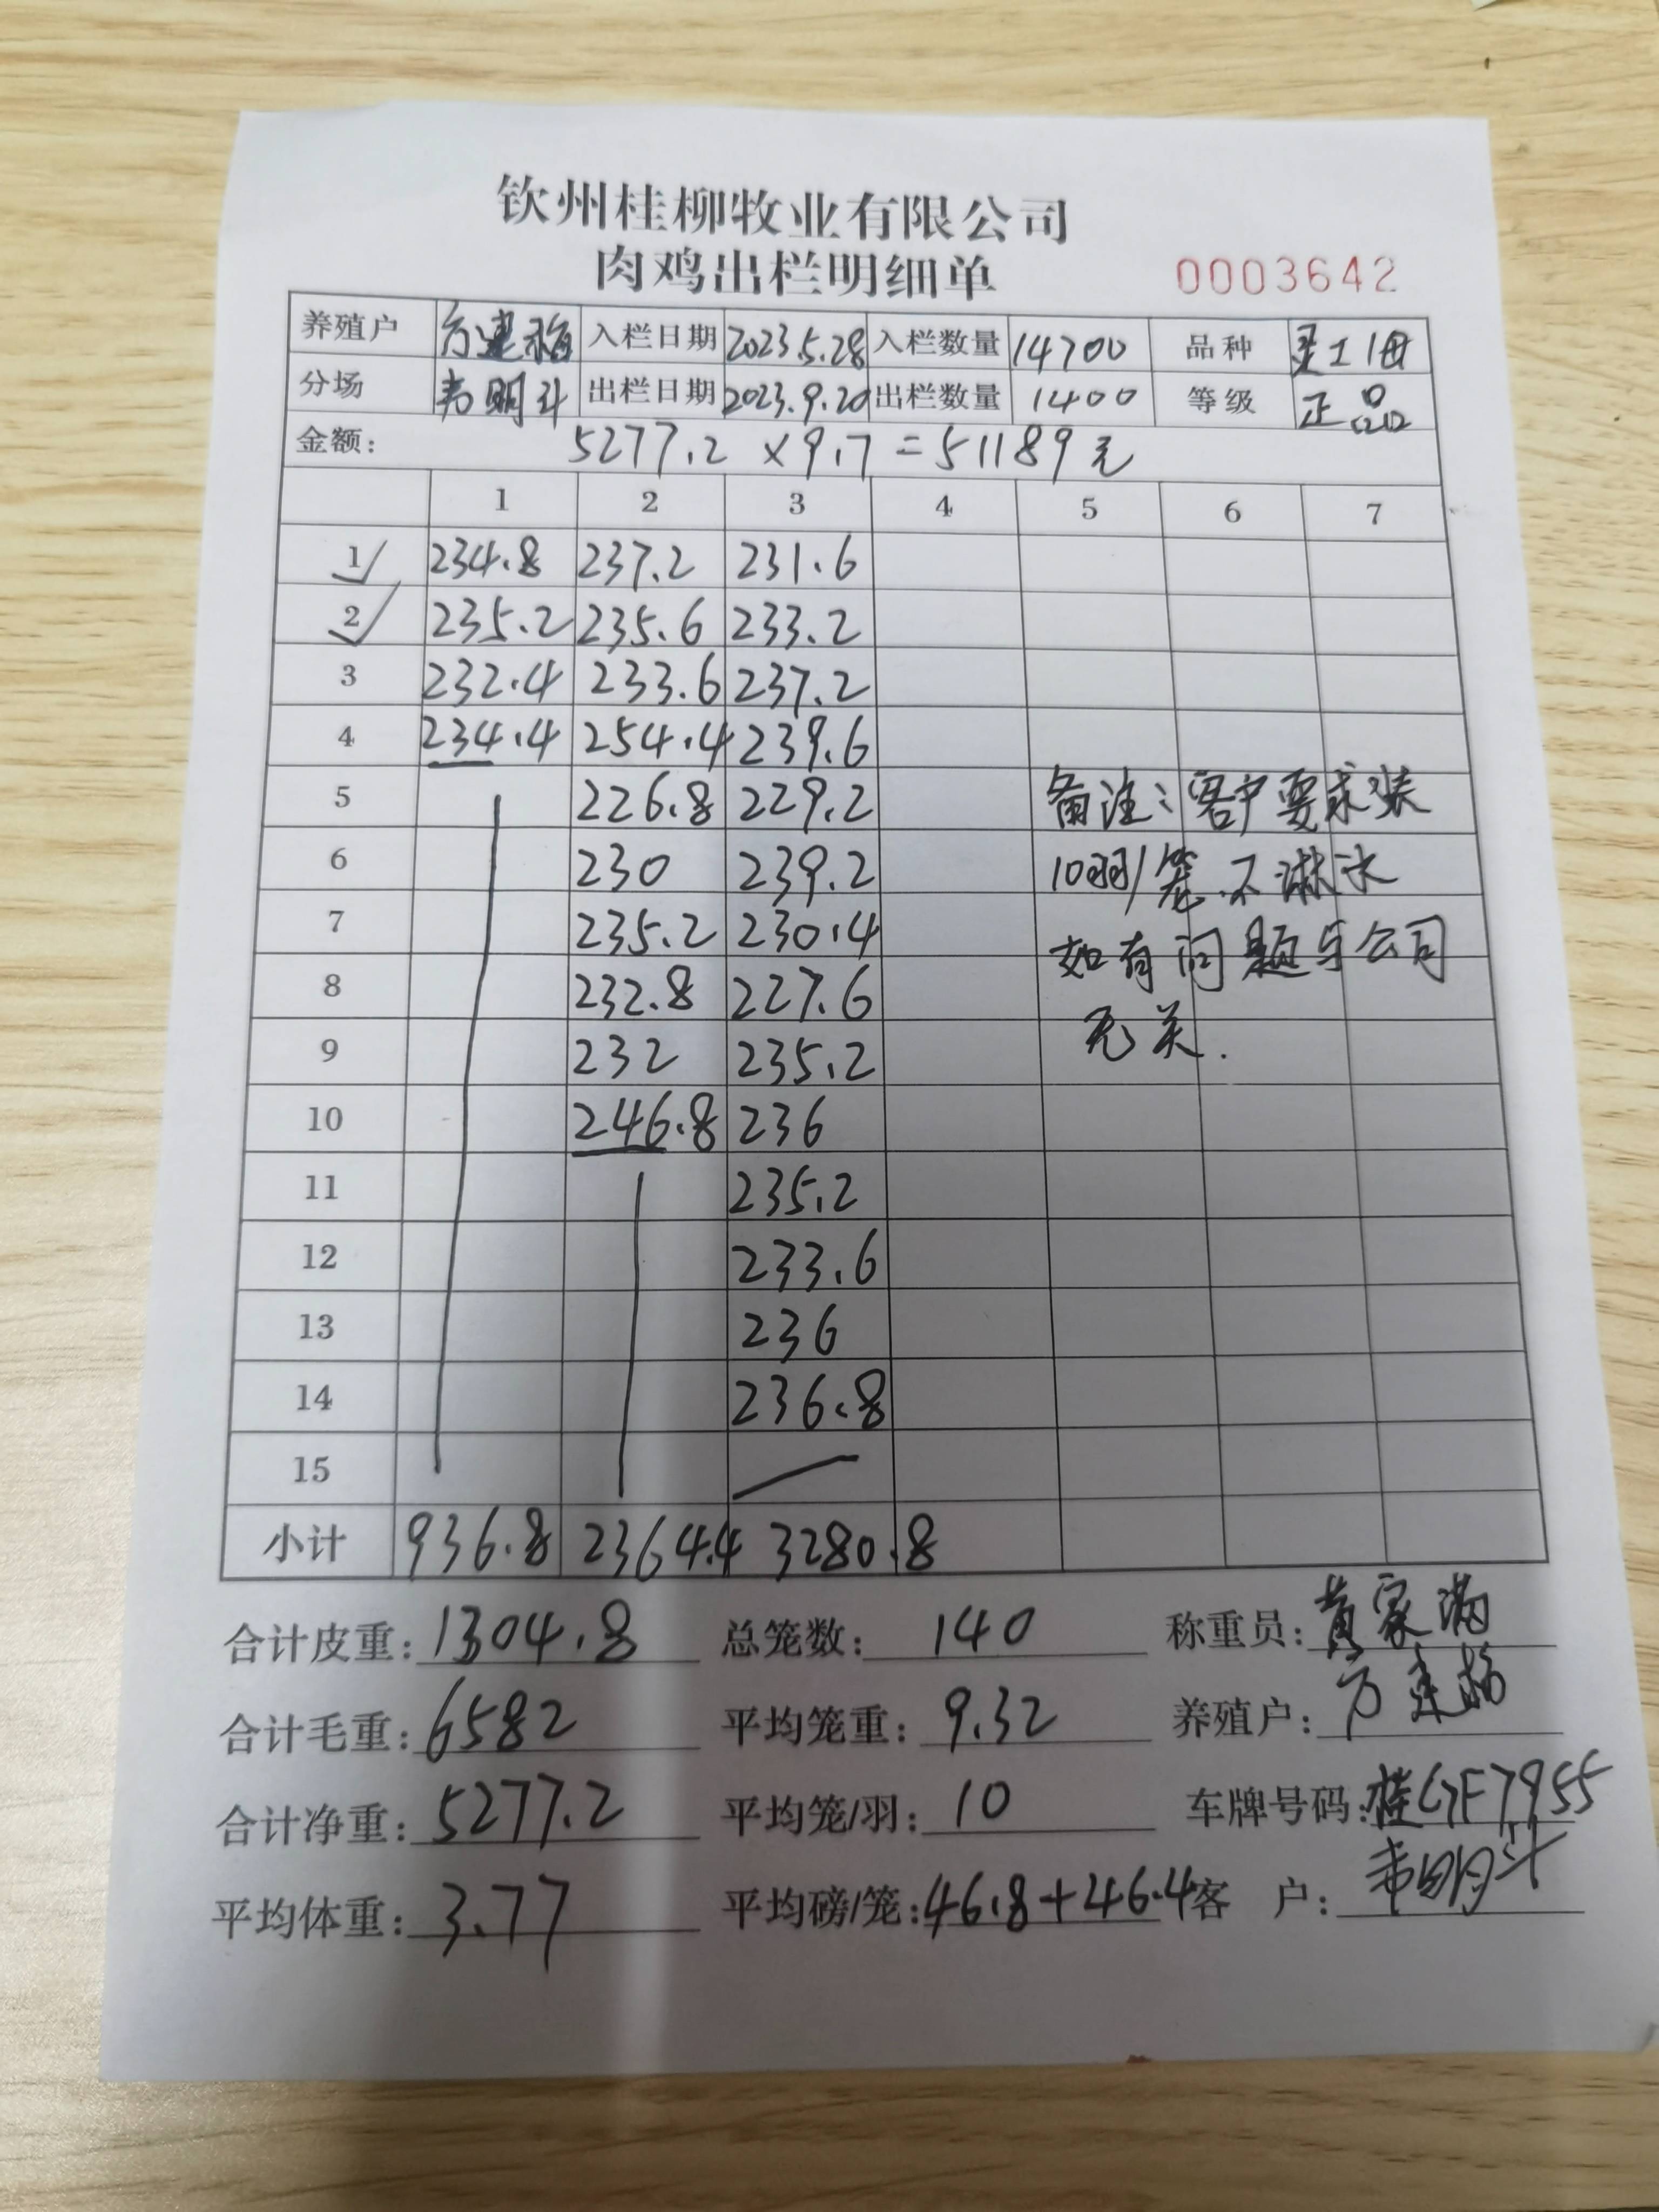 钦州桂柳牧业有限公司
肉鸡出栏明细单 0003642
养殖户 方建梅 入栏日期 2023.5.28 入栏数量 14700 品种 灵土1母
分场 韦明斗 出栏日期 2023.9.20 出栏数量 1400 等级 正品
金额: 5277.2 × 9.7 = 51189元
1 2 3 4 5 6 7
1 234.8 237.2 231.6
2 235.2 235.6 233.2
3 232.4 233.6 237.2
4 234.4 254.4 239.6
5 226.8 229.2 备注:客户要求装
6 230 239.2 10羽/笼.不淋水
7 235.2 230.4 如有问题与公司
8 232.8 227.6 无关.
9 232 235.2
10 246.8 236
11 235.2
12 233.6
13 236
14 236.8
15
小计 936.8 2364.4 3280.8
合计皮重: 1304.8 总笼数: 140 称重员: 黄家满
合计毛重: 6582 平均笼重: 9.32 养殖户: 方建梅
合计净重: 5277.2 平均笼/羽: 10 车牌号码: 桂GF7955
平均体重: 3.77 平均磅/笼: 46.8+46.4 客 户: 韦明斗